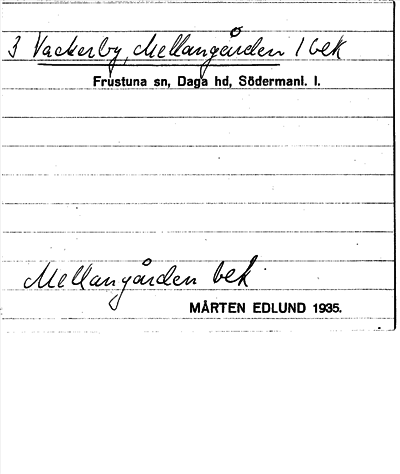 3 Vackerby, Mellangården 1 bek
Frustuna sn, Daga hd, Södermanl. l.
Mellangården bek
MÅRTEN EDLUND 1935.